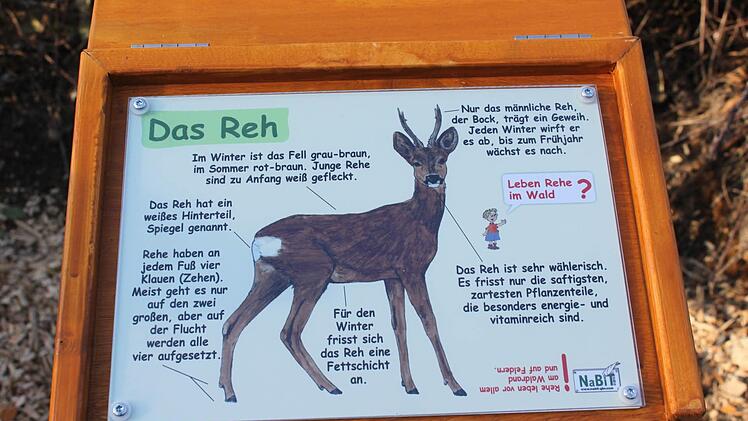 Das Reh
Im Winter ist das Fell grau-braun,
im Sommer rot-braun. Junge Rehe
sind zu Anfang weiß gefleckt.
Nur das männliche Reh,
der Bock, trägt ein Geweih.
Jeden Winter wirft er
es ab, bis zum Frühjahr
wächst es nach.
Das Reh hat ein
weißes Hinterteil,
Spiegel genannt.
Leben Rehe
im Wald ?
Rehe haben an
jedem Fuß vier
Klauen (Zehen).
Meist geht es nur
auf den zwei
großen, aber auf
der Flucht
werden alle
vier aufgesetzt.
Für den
Winter
frisst sich
das Reh eine
Fettschicht
an.
Das Reh ist sehr wählerisch.
Es frisst nur die saftigsten,
zartesten Pflanzenteile,
die besonders energie- und
vitaminreich sind.
! Rehe leben vor allem
am Waldrand
und auf Feldern.
NaBiT